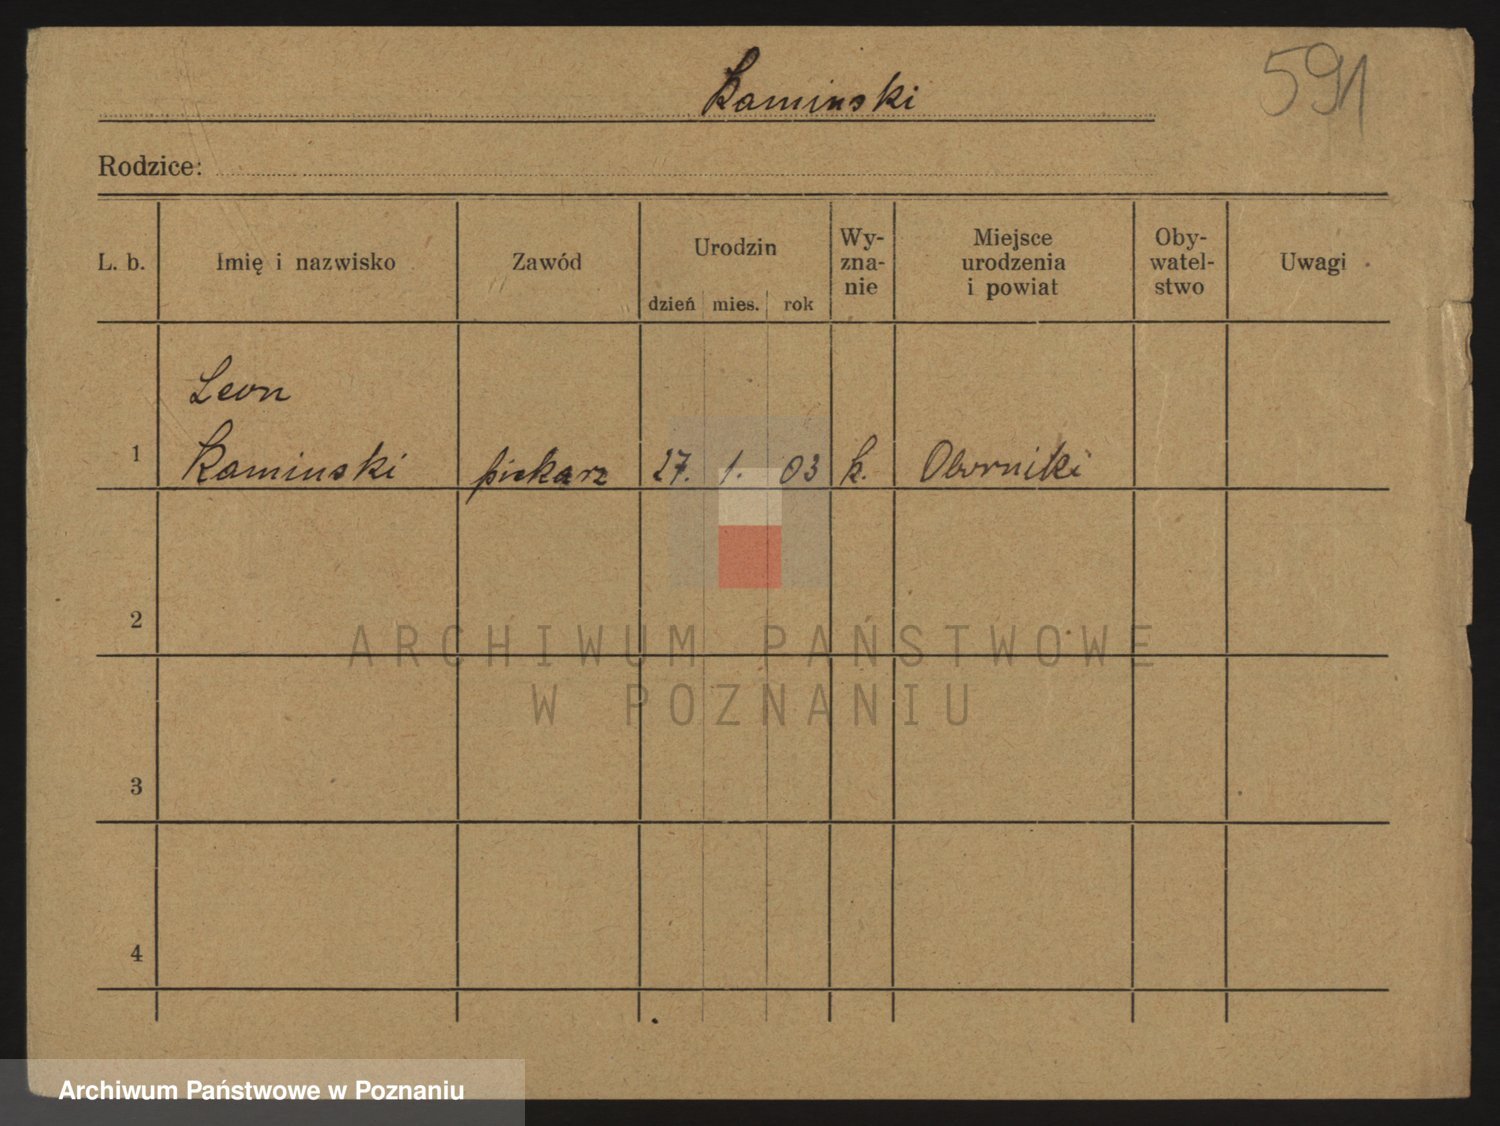 Kaminski
591
Rodzice:
L. b.
Imię i nazwisko
Zawód
Urodzin
dzień mies. rok
Wy-
zna-
nie
Miejsce
urodzenia
i powiat
Oby-
watel-
stwo
Uwagi
Leon
1 Kaminski piekarz 27. 1. 03 k. Oborniki
2
3
4
ARCHIWUM PAŃSTWOWE
W POZNANIU
Archiwum Państwowe w Poznaniu